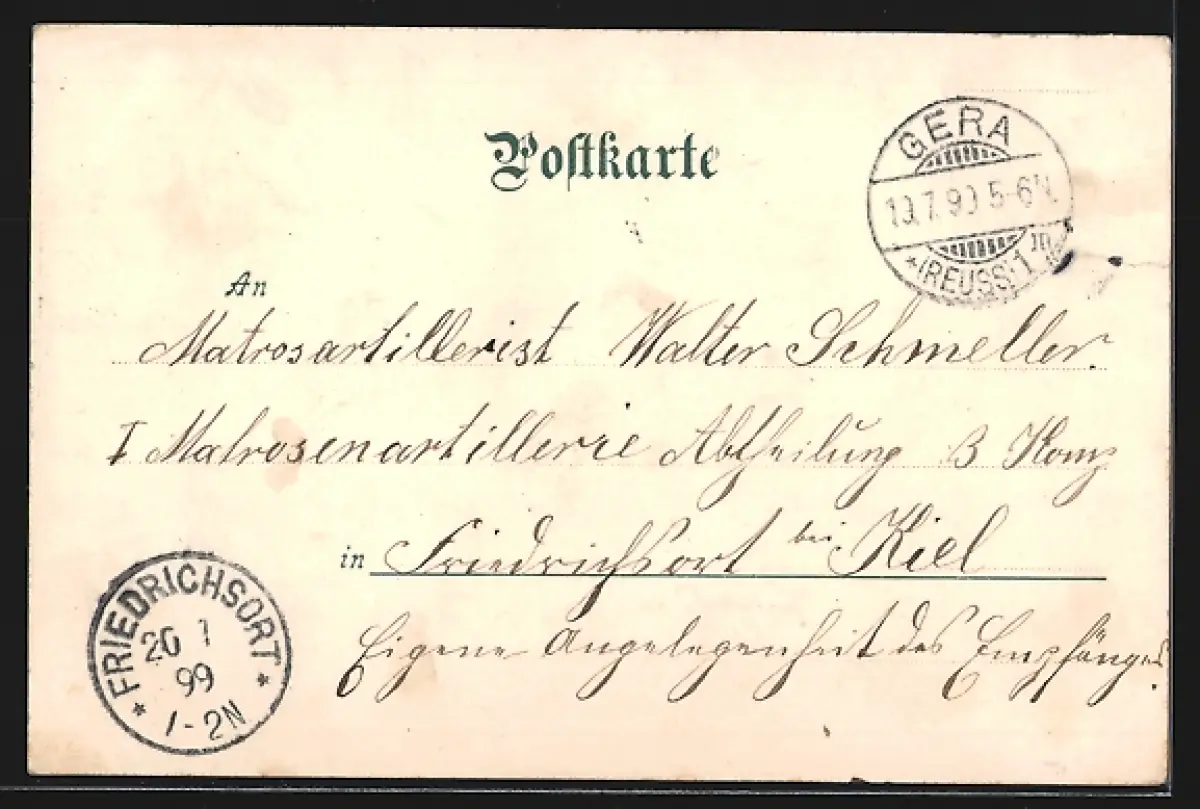 Postkarte
GERA
19.7.99 5-6N.
* (REUSS) 1
An
Matrosartillerist Walter Schmeller.
I Matrosenartillerie Abtheilung 3 Komp
in Friedrichsort bei Kiel
Eigene Angelegenheit des Empfängers.
* FRIEDRICHSORT *
20 7
99
1-2N